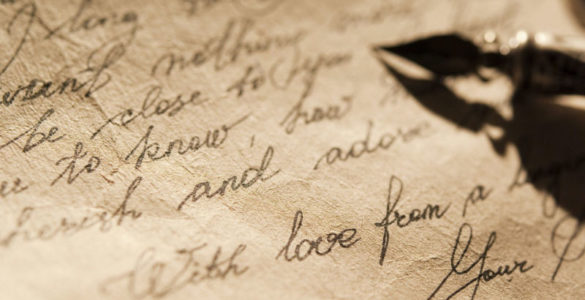 long
want nothing
be close to you
to know, how
herish and adore
With love from a
Your